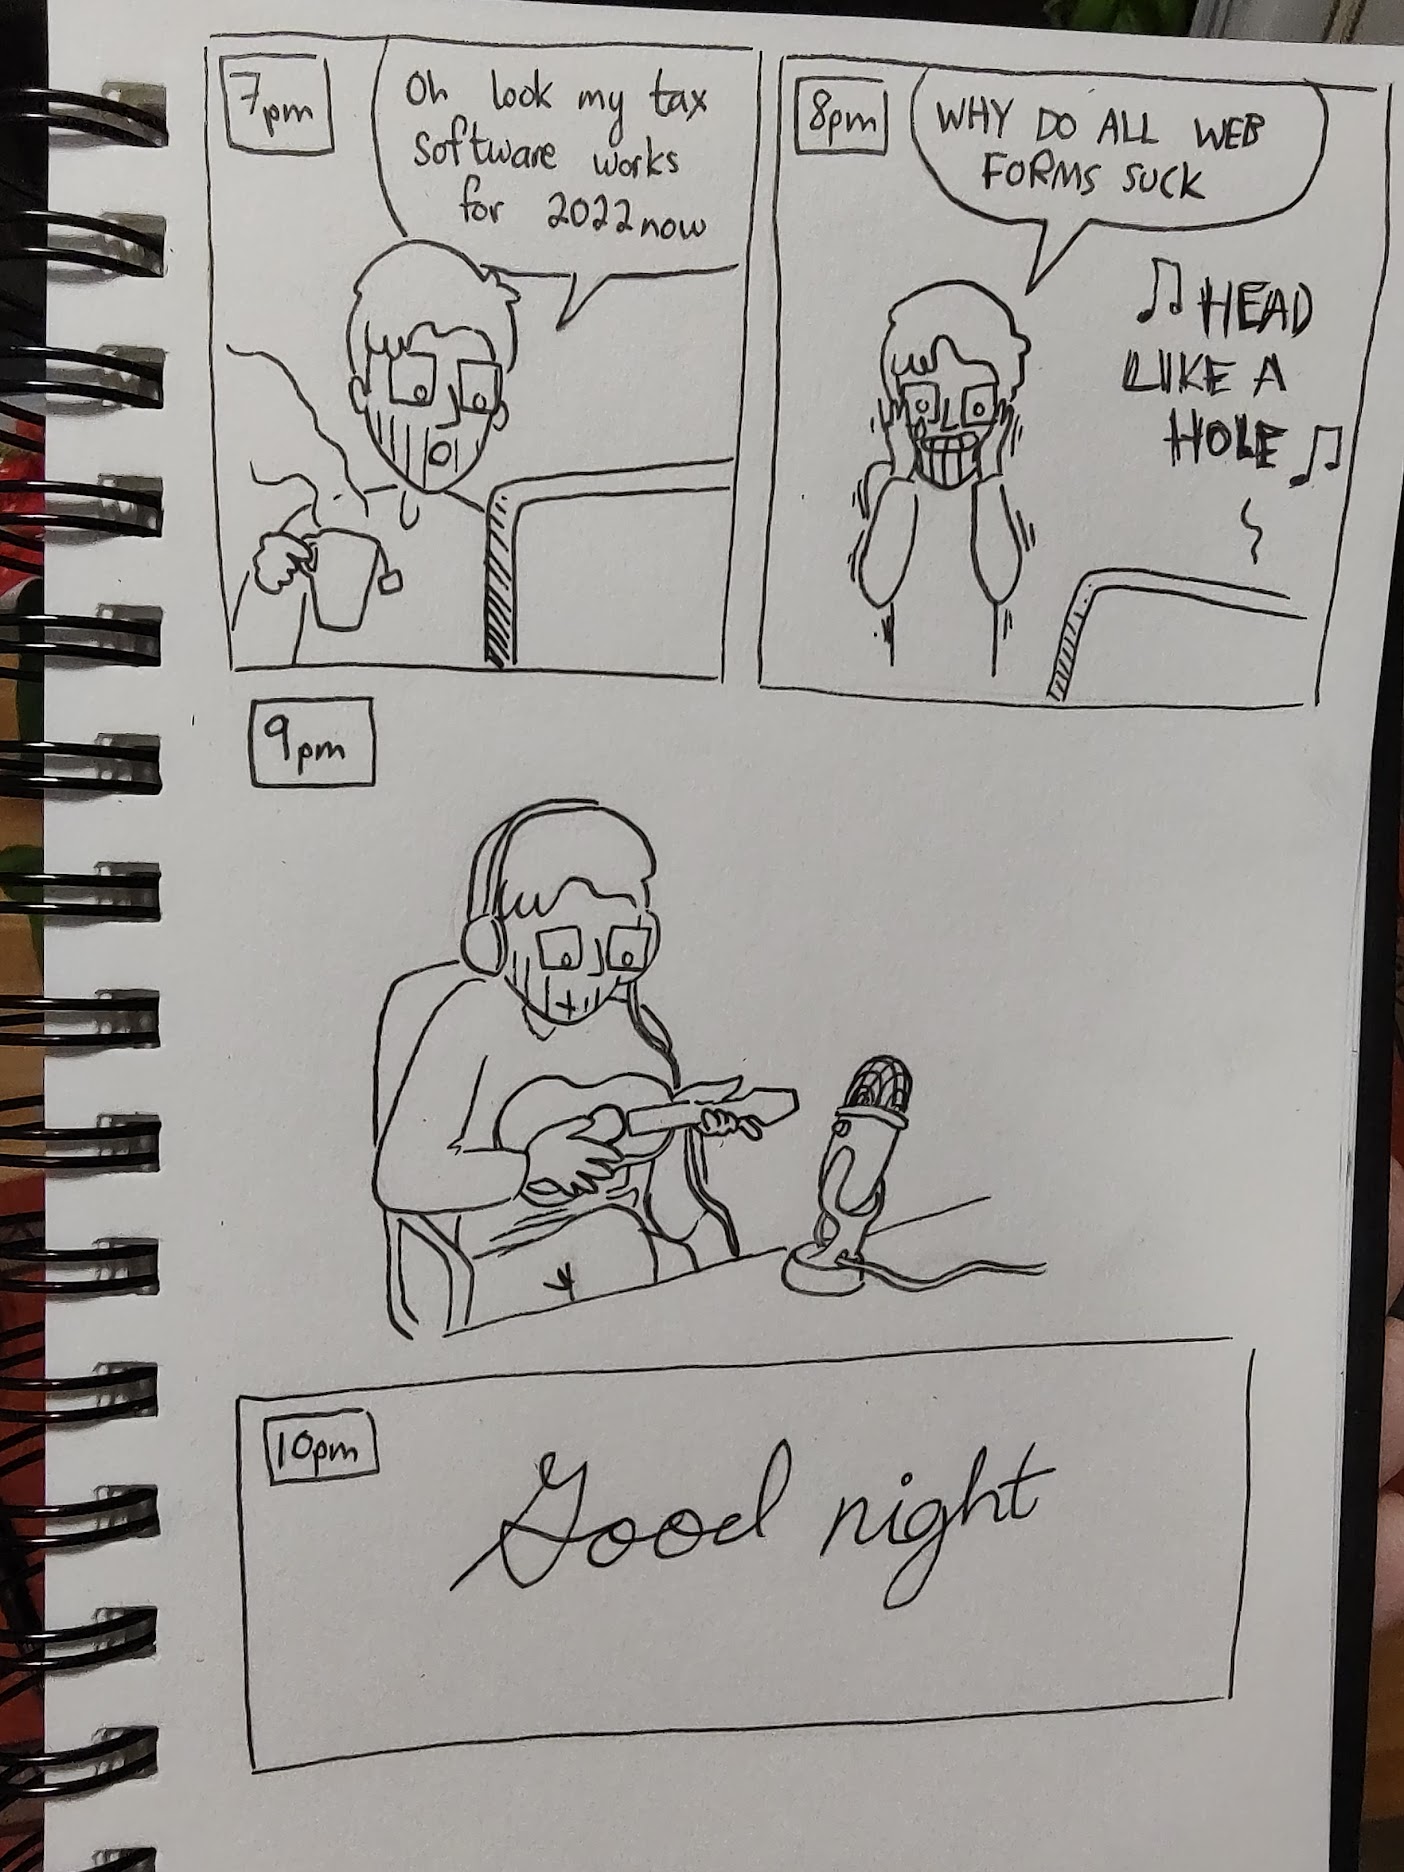 7pm
Oh look my tax
software works
for 2022 now
8pm
WHY DO ALL WEB
FORMS SUCK
♫ HEAD
LIKE A
HOLE ♫
9pm
10pm
Good night